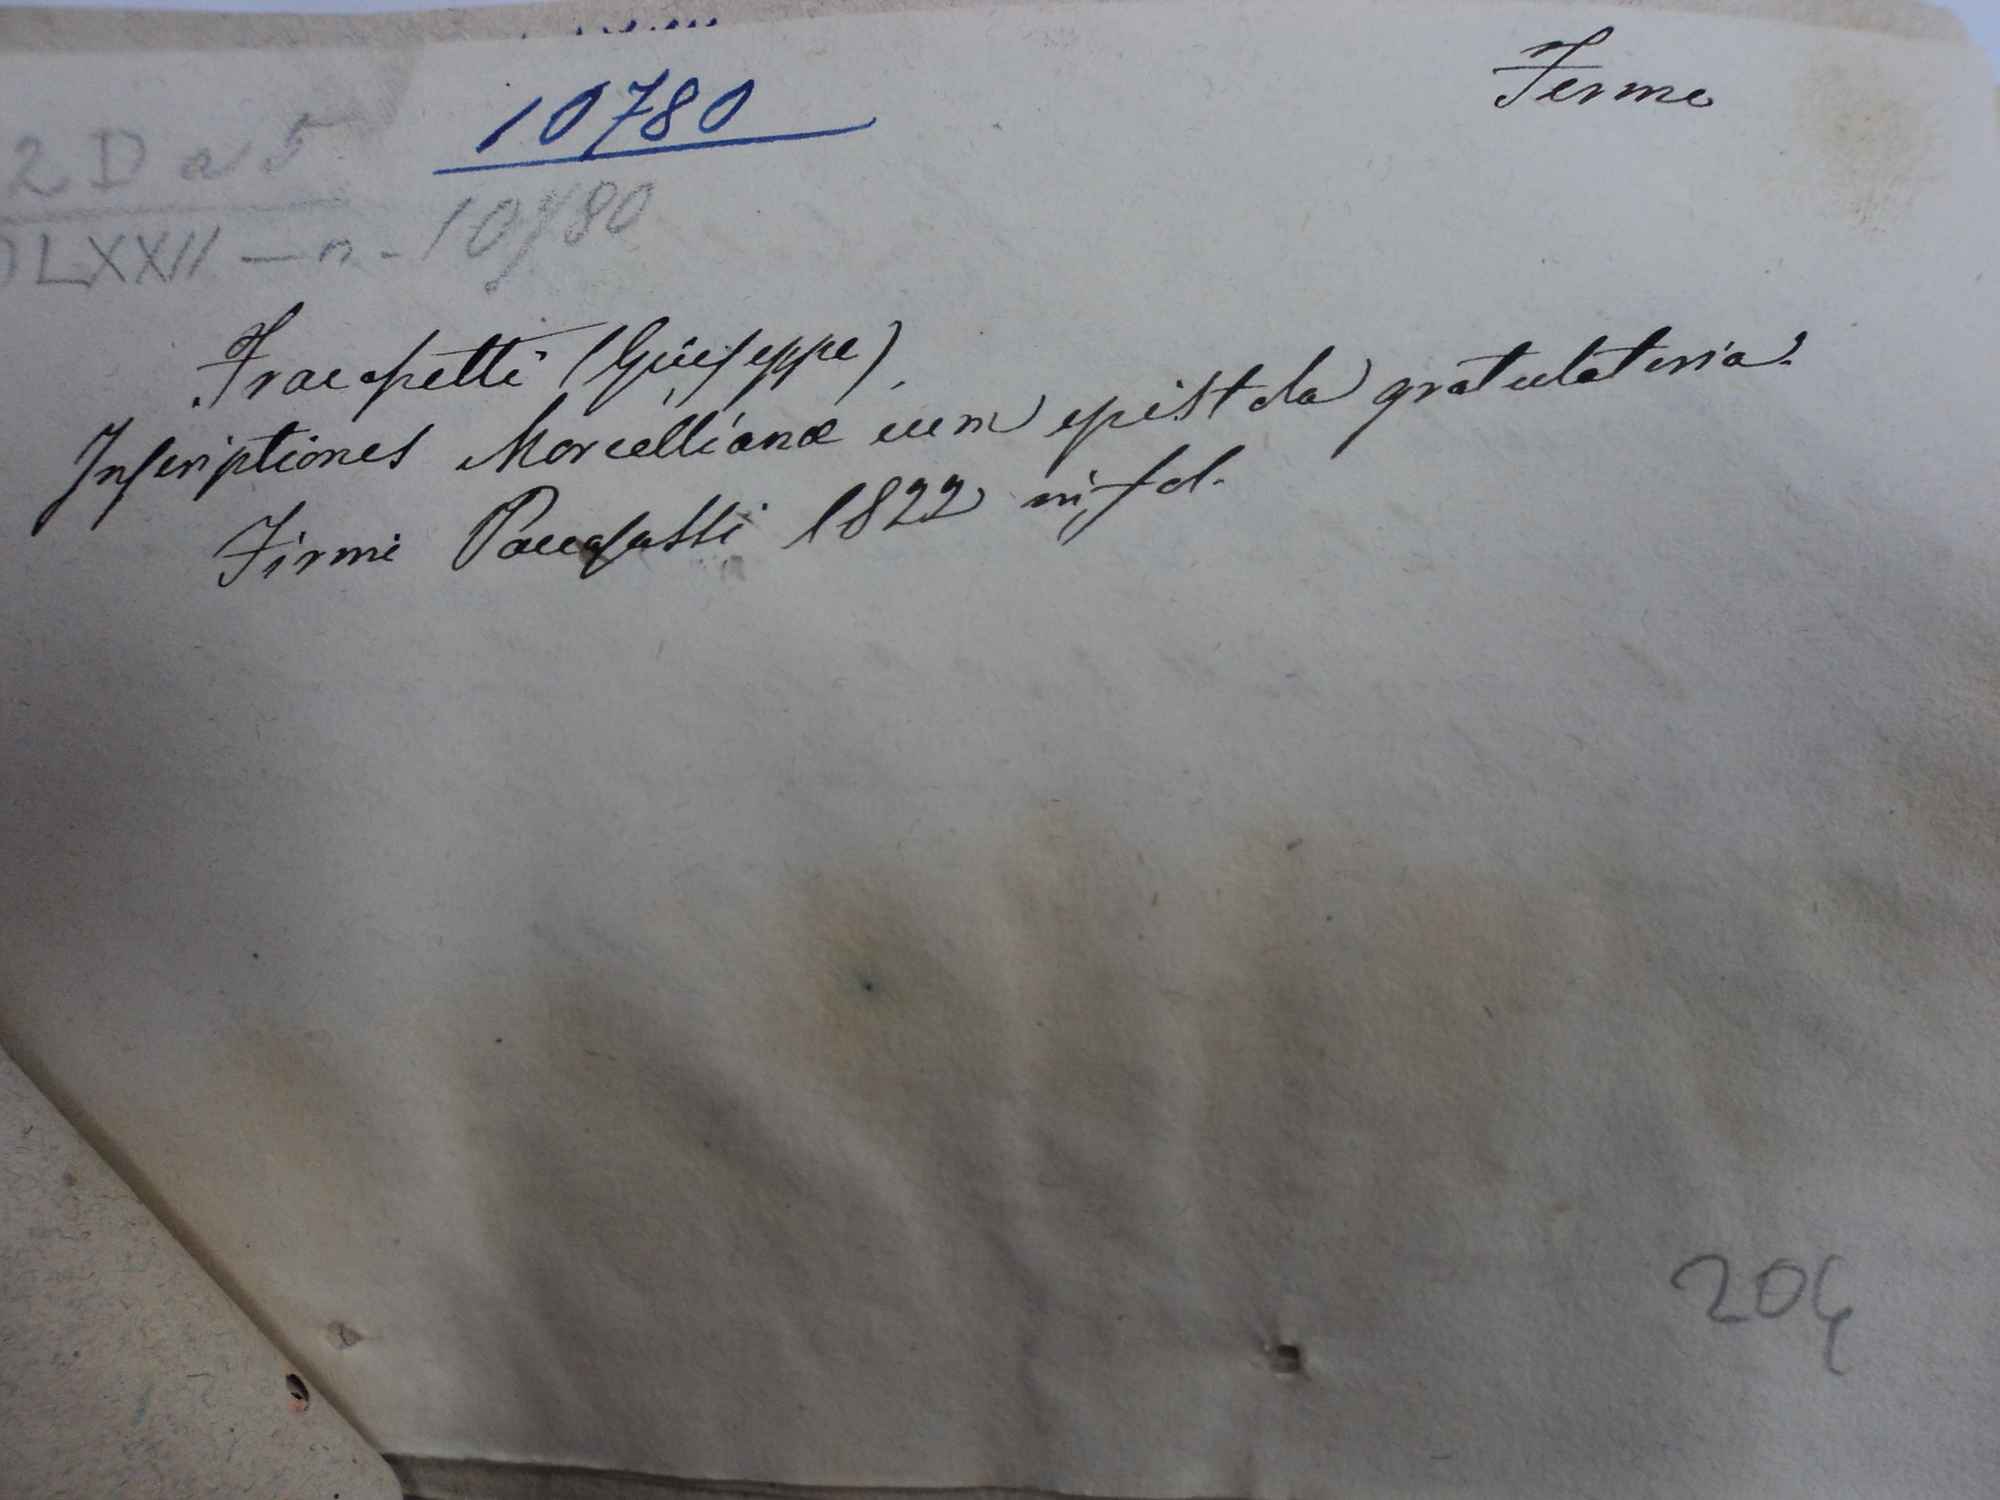 10780
Fermo
2 D a 5
DLXXII — n. 10780
Fracassetti (Giuseppe)
Inscriptiones Morcellianæ cum epistola gratulatoria.
Firmi Paccasassi 1822 in fol.
204